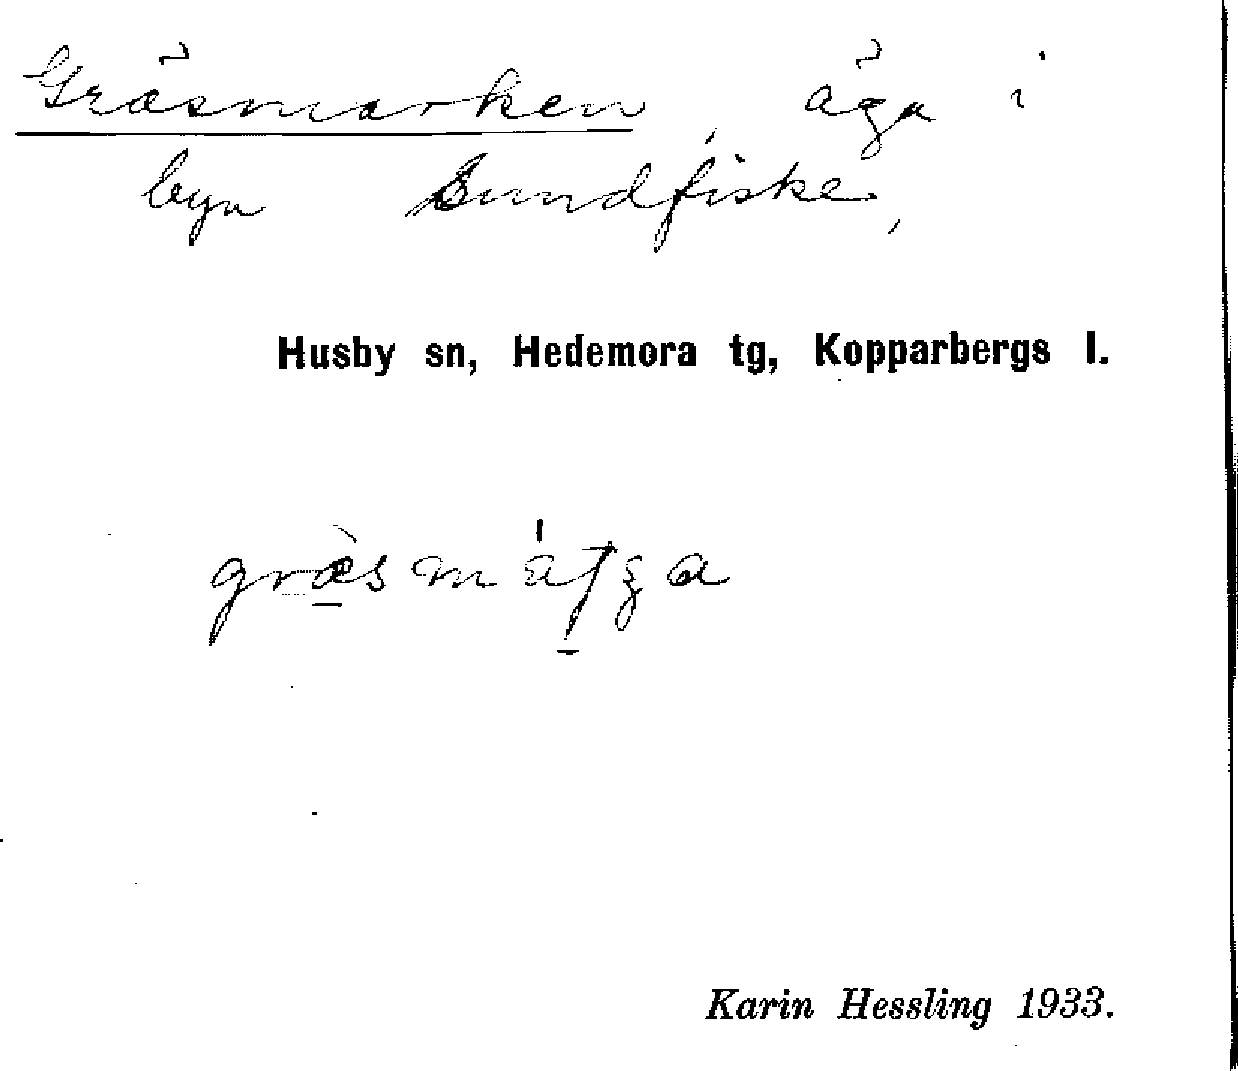 Gräsmarken, äga i
byn Sundfiske,
Husby sn, Hedemora tg, Kopparbergs l.
Karin Hessling 1933.